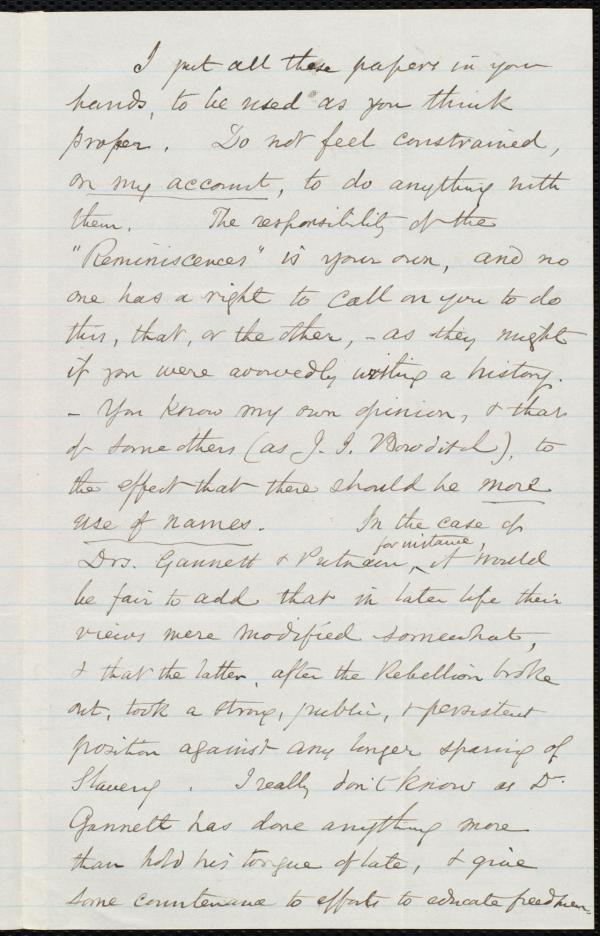 I put all these papers in your
hands, to be used as you think
proper. Do not feel constrained,
on my account, to do anything with
them. The responsibility of the
"Reminiscences" is your own, and no
one has a right to call on you to do
this, that, or the other, - as they might
if you were avowedly writing a history.
- You know my own opinion, & that
of some others (as J. I. Bowditch), to
the effect that there should be more
use of names. In the case of
for instance,
Drs. Gannett & Putnam, it would
be fair to add that in later life their
views were modified somewhat,
& that the latter, after the Rebellion broke
out, took a strong, public, & persistent
position against any longer sparing of
Slavery. I really don't know as Dr.
Gannett has done anything more
than hold his tongue of late, & give
some countenance to efforts to educate freedmen.